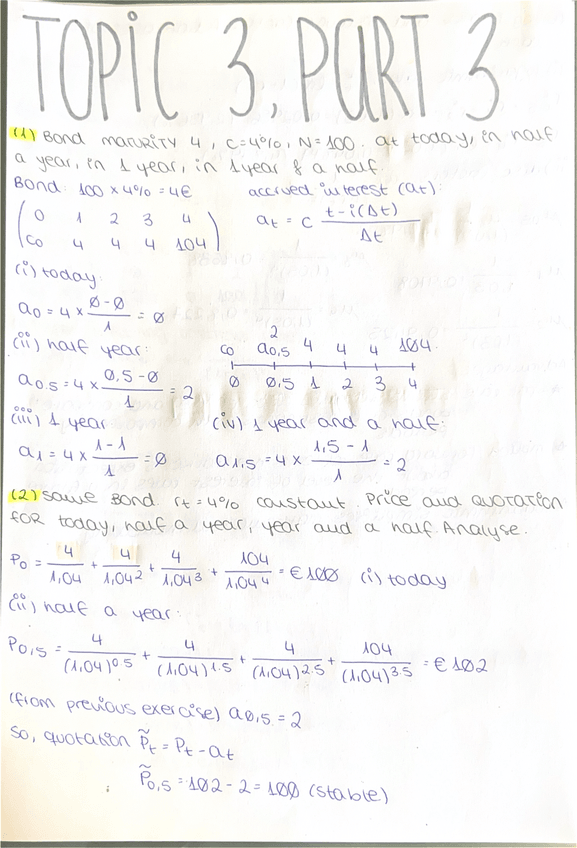 TOPIC 3, PART 3
(1) Bond maturity 4, C=4%, N=100. at today, in half
a year, in 1 year, in 1 year & a half.
Bond: 100 x 4% = 4€ accrued interest (at):
0 1 2 3 4
C0 4 4 4 104
at = C (t-i(Δt))/Δt
(i) today:
a0 = 4 x (0-0)/1 = 0
(ii) half year:
a0,5 = 4 x (0,5-0)/1 = 2
2
C0 a0,5 4 4 4 104
0 0,5 1 2 3 4
(iii) 1 year
a1 = 4 x (1-1)/1 = 0
(iv) 1 year and a half:
a1,5 = 4 x (1,5-1)/1 = 2
(2) Same Bond. rt = 4% constant. Price and quotation
for today, half a year, year and a half. Analyse.
P0 = 4/1,04 + 4/1,04² + 4/1,04³ + 104/1,04⁴ = €100 (i) today
(ii) half a year:
P0,5 = 4/(1,04)^0.5 + 4/(1,04)^1.5 + 4/(1,04)^2.5 + 104/(1,04)^3.5 = €102
(from previous exercise) a0,5 = 2
So, quotation P̃t = Pt - at
P̃0,5 = 102 - 2 = 100 (stable)